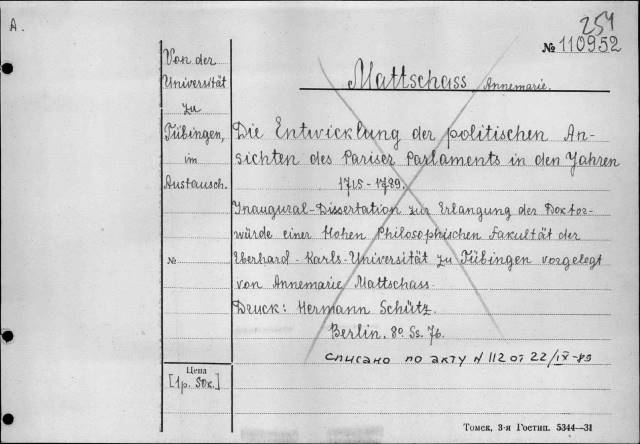 A.
254
№ 110952
Von der
Universität
zu
Tübingen,
im
Austausch.
Mattschass, Annemarie.
Die Entwicklung der politischen An-
sichten des Pariser Parlaments in den Jahren
1715-1789.
Inaugural-Dissertation zur Erlangung der Doktor-
würde einer Hohen Philosophischen Fakultät der
№
Eberhard-Karls-Universität zu Tübingen vorgelegt
von Annemarie Mattschass.
Druck: Hermann Schütz.
Berlin. 8°. Ss. 76.
списано по акту N 112 от 22/IX-83
Цена
[1р. 50к.]
Томск, 3-я Гостип. 5344—31